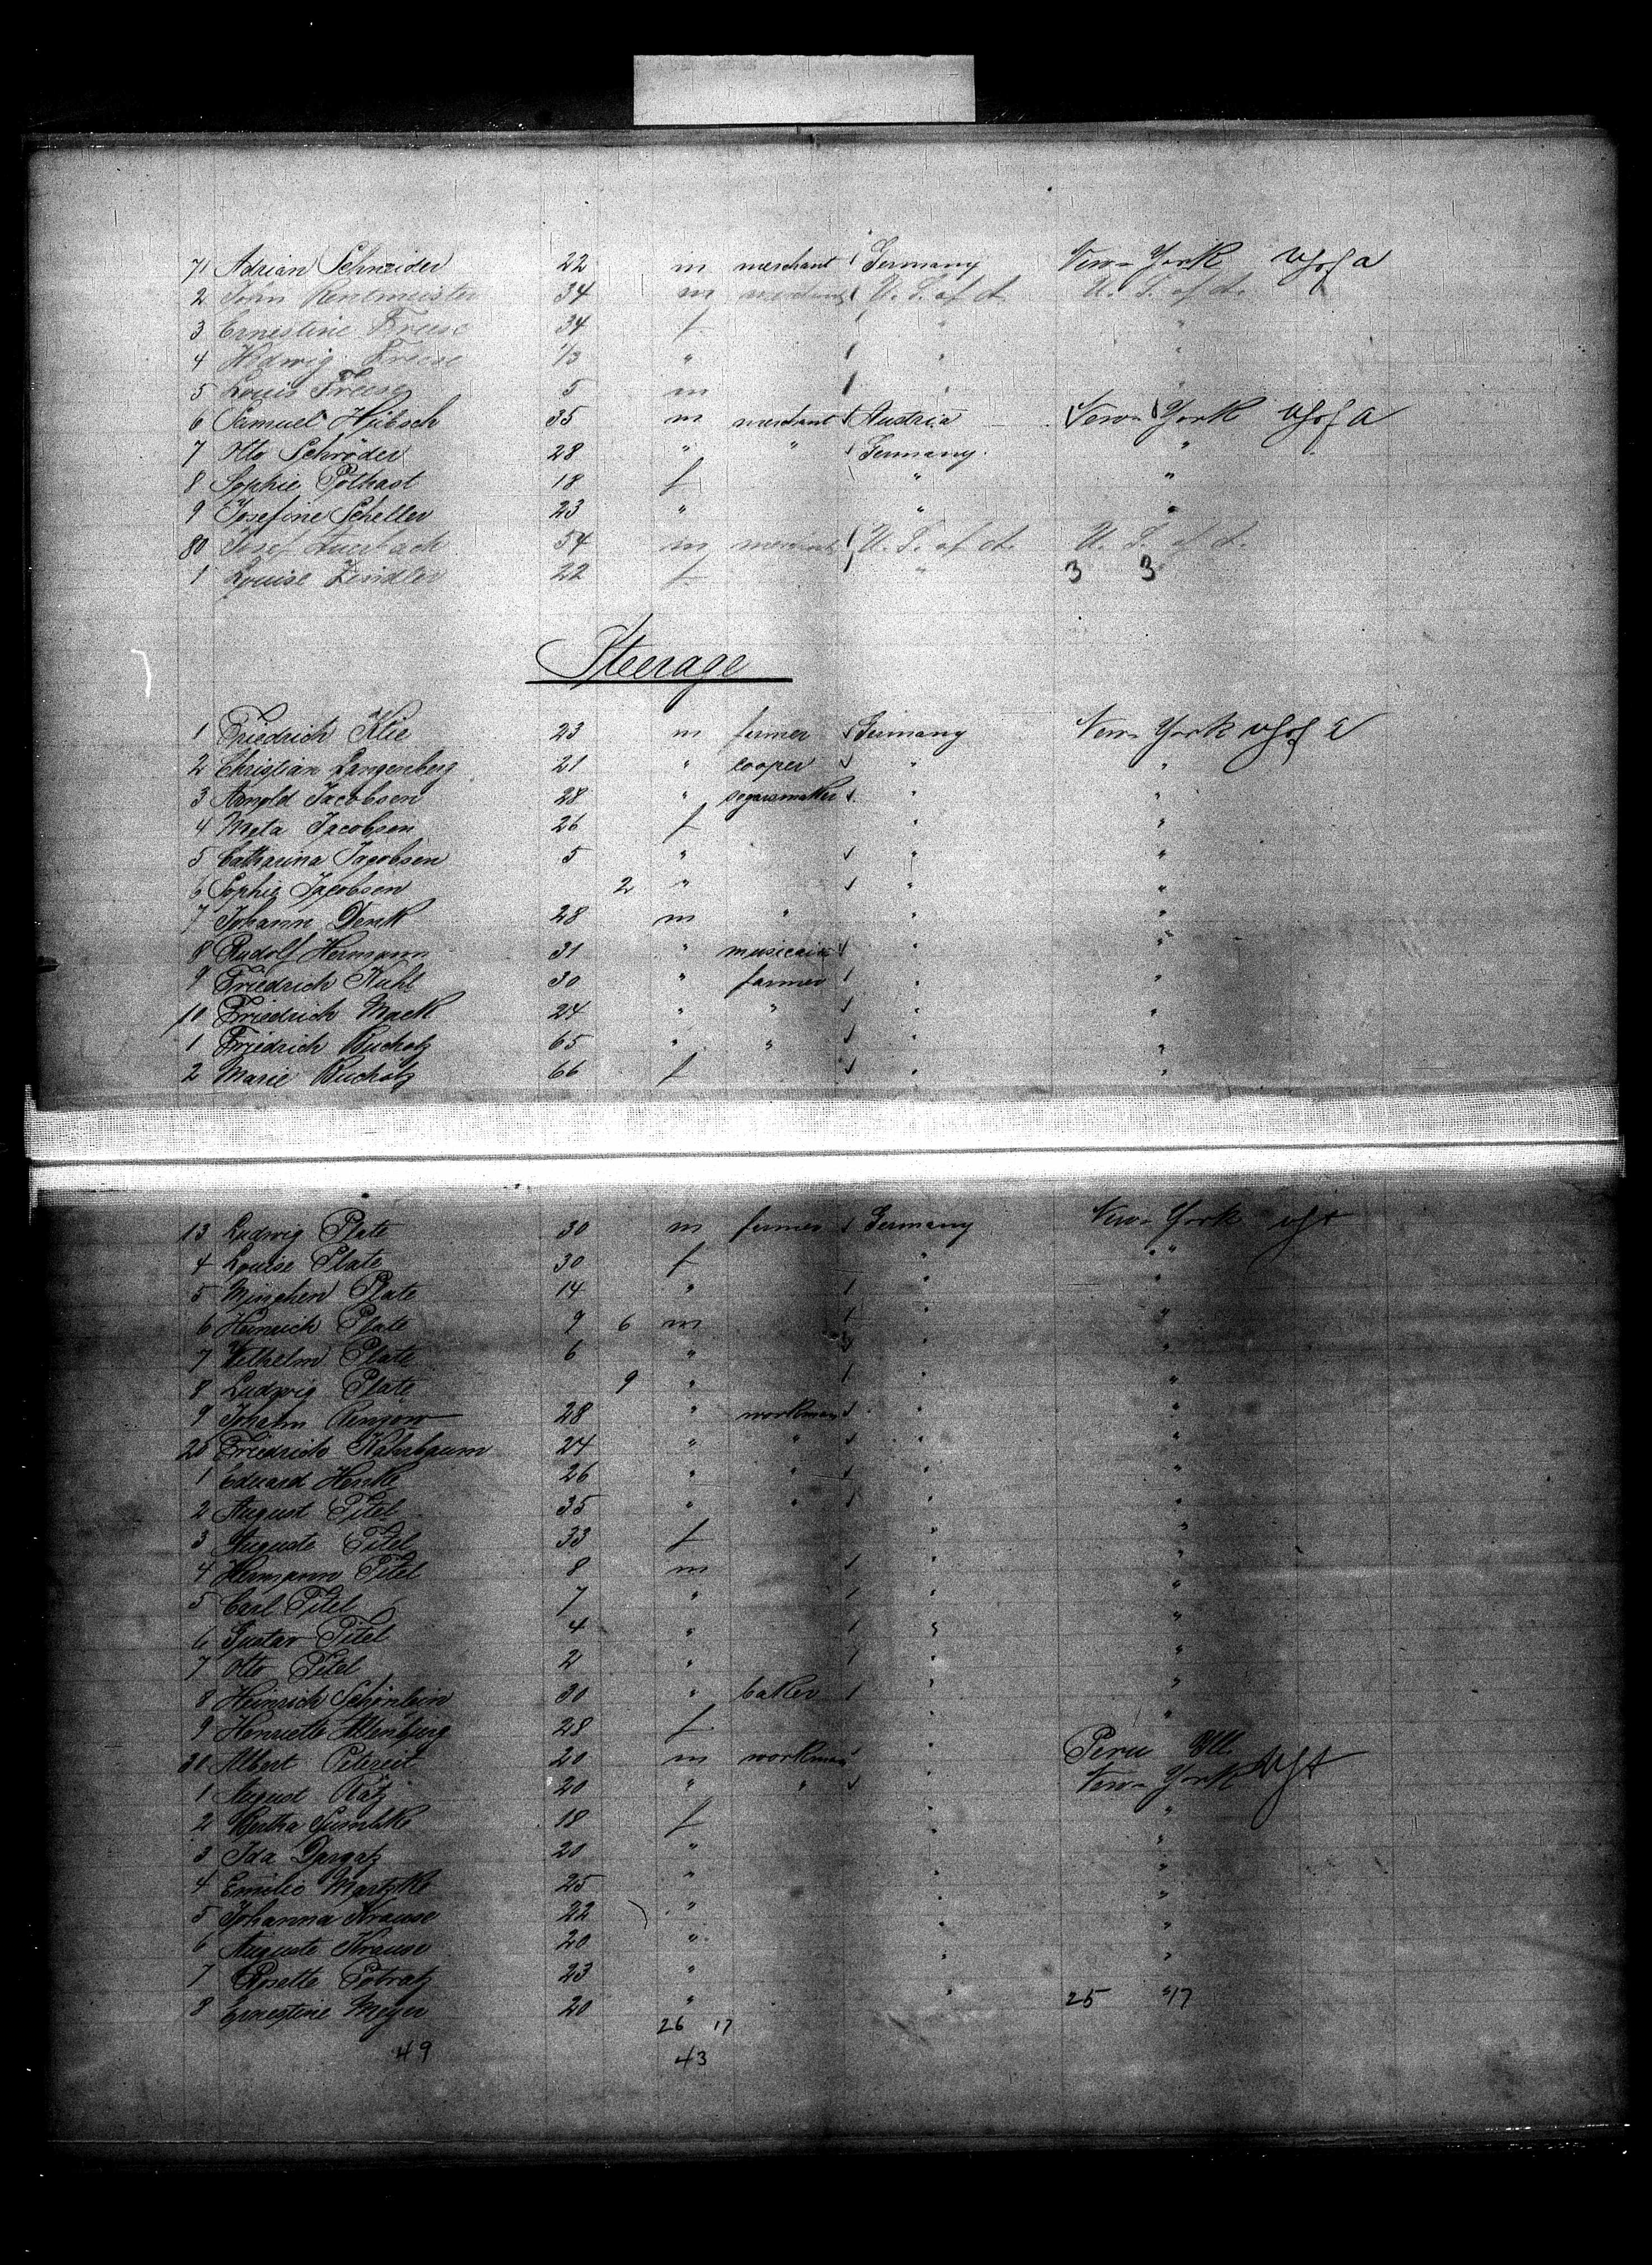 71 Adrian Schneider 22 m merchant Germany New-York US of A
2 John Rentmeister 34 m merchant U. S. of A. U. S. of A.
3 Ernestine Freese 34 f " "
4 Hedwig Freese 1/3 " " "
5 Louis Freese 5 m " "
6 Samuel Hübsch 35 m merchant Austria New-York US of A
7 Otto Schröder 28 " " Germany. "
8 Sophie Pothast 18 f " "
9 Josefine Scheller 23 " " "
80 Josef Auerbach 54 m merchant U. S. of A. U. S. of A.
1 Louise Zindler 22 f " 3 3
Steerage
1 Friedrich Klie 23 m farmer Germany New-York US of
2 Christian Langenberg 21 " cooper " "
3 Arnold Jacobsen 28 " segarsmaker " "
4 Meta Jacobsen 26 f " "
5 Catharina Jacobsen 5 " " "
6 Sophie Jacobsen 2 " " "
7 Johann Denk 28 m " " "
8 Rudolf Hermann 31 " musician " "
9 Friedrich Kuhl 30 " farmer " "
10 Friedrich Mack 24 " " " "
1 Friedrich Bucholz 65 " " " "
2 Marie Bucholz 66 f " "
13 Ludwig Plate 30 m farmer Germany New-York
4 Louise Plate 30 f " "
5 Minchen Plate 14 " " "
6 Heinrich Plate 9 6 m " "
7 Wilhelm Plate 6 " "
8 Ludwig Plate 9 " "
9 Johann 28 " workman " "
20 Friedrich Kahrbaum 24 " " " "
1 Eduard Henke 26 " " " "
2 August Titel 35 " " " "
3 Auguste Titel 33 f " "
4 Hermann Titel 8 m " "
5 Carl Titel 7 " " "
6 Gustav Titel 4 " " "
7 Otto Titel 2 " " "
8 Heinrich Schönlein 30 " baker " "
9 Henriette Altenburg 28 f " "
30 Albert Petereit 20 m workman " Peru Ill.
1 August Rätz 20 " " " New-York
2 Bertha 18 f " "
3 Ida Dargatz 20 " "
4 Emilie Martzke 25 " " "
5 Johanna Krause 22 " " "
6 Auguste Krause 20 " " "
7 Rosette Potratz 23 " "
8 Ernestine Meyer 20 " " 25 17
26 17
49 43